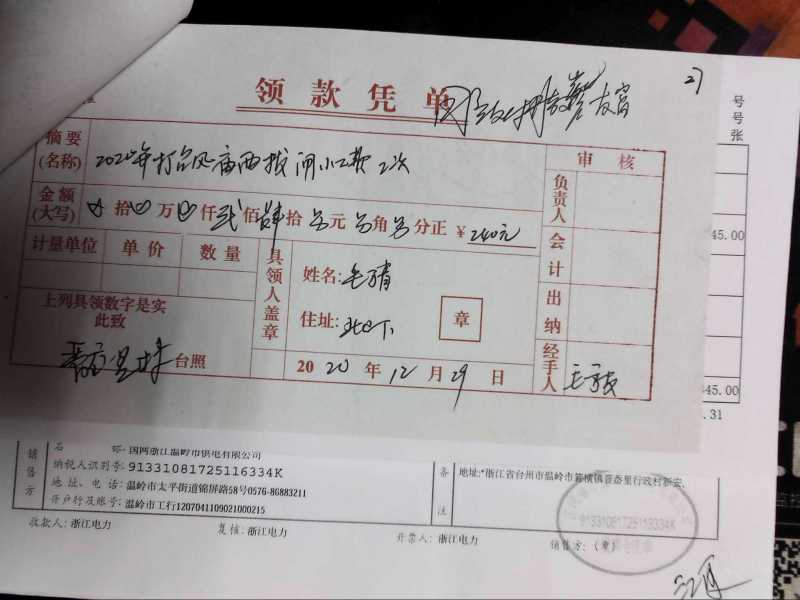 27
领款凭单
号
号
张
摘要
(名称)
2020年打台风庙西拔闸小工费 2次
审核
金额
(大写)
拾 万 仟 贰 佰 肆 拾 元 角 分正 ¥ 240元
负责人
45.00
计量单位 单价 数量
具领人盖章
姓名:
会计
上列具领数字是实
此致
住址:
章
出纳
台照
2020 年 12 月 29 日
经手人
345.00
.31
销售方
名 称: 国网浙江温岭市供电有限公司
纳税人识别号: 91331081725116334K
地 址、电 话: 温岭市太平街道锦屏路58号0576-86883211
开户行及账号: 温岭市工行1207041109021000215
备注
地址:*浙江省台州市温岭市箬横镇晋岙里行政村新安,
91331081725116334K
收款人: 浙江电力 复核: 浙江电力 开票人: 浙江电力 销售方: (章)